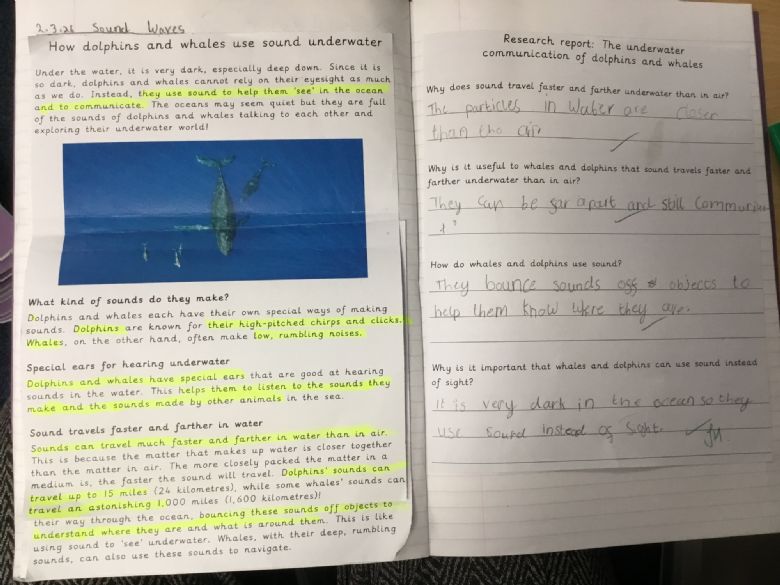 2.3.26 Sound Waves
How dolphins and whales use sound underwater
Under the water, it is very dark, especially deep down. Since it is
so dark, dolphins and whales cannot rely on their eyesight as much
as we do. Instead, they use sound to help them 'see' in the ocean
and to communicate. The oceans may seem quiet but they are full
of the sounds of dolphins and whales talking to each other and
exploring their underwater world!
What kind of sounds do they make?
Dolphins and whales each have their own special ways of making
sounds. Dolphins are known for their high-pitched chirps and clicks.
Whales, on the other hand, often make low, rumbling noises.
Special ears for hearing underwater
Dolphins and whales have special ears that are good at hearing
sounds in the water. This helps them to listen to the sounds they
make and the sounds made by other animals in the sea.
Sound travels faster and farther in water
Sounds can travel much faster and farther in water than in air.
This is because the matter that makes up water is closer together
than the matter in air. The more closely packed the matter in a
medium is, the faster the sound will travel. Dolphins' sounds can
travel up to 15 miles (24 kilometres), while some whales' sounds can
travel an astonishing 1,000 miles (1,600 kilometres)!
their way through the ocean, bouncing these sounds off objects to
understand where they are and what is around them. This is like
using sound to 'see' underwater. Whales, with their deep, rumbling
sounds, can also use these sounds to navigate.
Research report: The underwater
communication of dolphins and whales
Why does sound travel faster and farther underwater than in air?
The particles in water are closer
than the air.
Why is it useful to whales and dolphins that sound travels faster and
farther underwater than in air?
They can be far apart and still
How do whales and dolphins use sound?
They bounce sounds off objects to
help them know where they are.
Why is it important that whales and dolphins can use sound instead
of sight?
It is very dark in the ocean so they
use sound instead of sight.